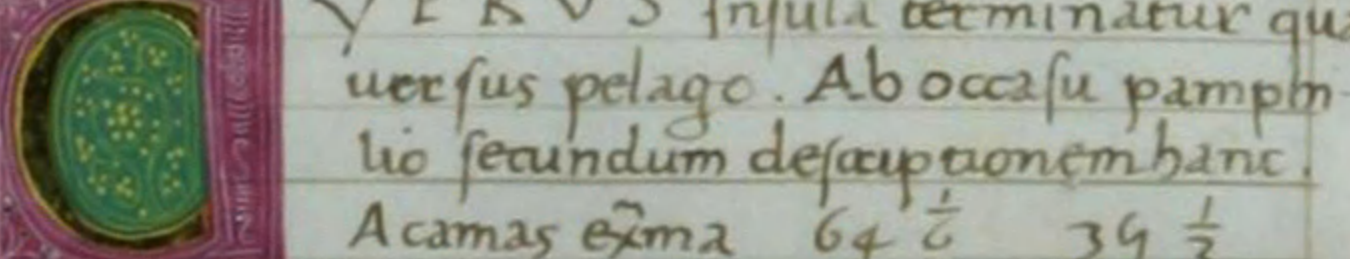 YPRVS Inſula terminatur qua
uerſus pelago. Ab occaſu pamphi-
lio ſecundum deſcriptionem hanc.
Acamas ex̃ma 64 1/6 35 1/2